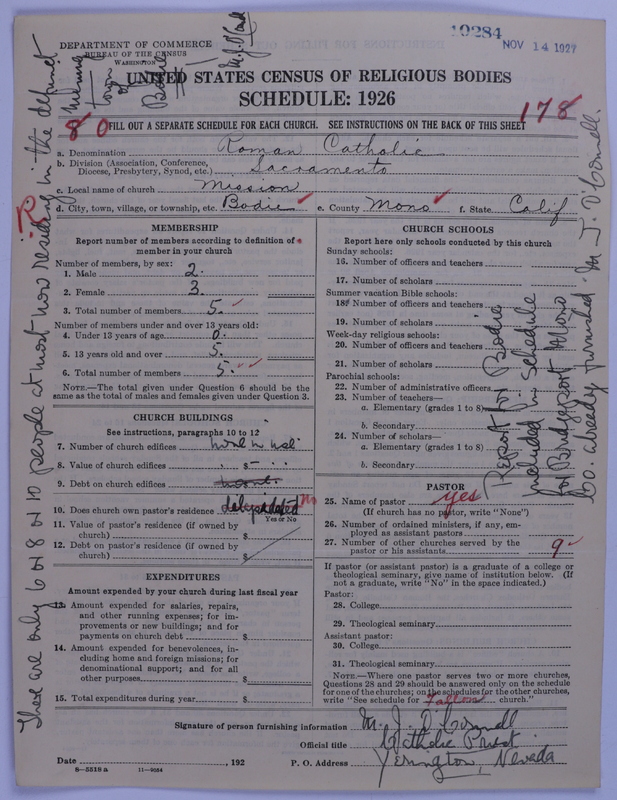 19284
NOV 14 1927
DEPARTMENT OF COMMERCE
BUREAU OF THE CENSUS
WASHINGTON
UNITED STATES CENSUS OF RELIGIOUS BODIES
SCHEDULE: 1926
178
80
FILL OUT A SEPARATE SCHEDULE FOR EACH CHURCH. SEE INSTRUCTIONS ON THE BACK OF THIS SHEET
a. Denomination Roman Catholic
b. Division (Association, Conference, Diocese, Presbytery, Synod, etc.) Sacramento
c. Local name of church Mission
d. City, town, village, or township, etc. Bodie e. County Mono f. State Calif
MEMBERSHIP
Report number of members according to definition of member in your church
Number of members, by sex:
1. Male 2.
2. Female 3.
3. Total number of members 5.
Number of members under and over 13 years old:
4. Under 13 years of age 0.
5. 13 years old and over 5.
6. Total number of members 5.
NOTE.—The total given under Question 6 should be the same as the total of males and females given under Question 3.
CHURCH BUILDINGS
See instructions, paragraphs 10 to 12
7. Number of church edifices none in use
8. Value of church edifices $ –
9. Debt on church edifices
10. Does church own pastor's residence delapidated No
Yes or No
11. Value of pastor's residence (if owned by church) $
12. Debt on pastor's residence (if owned by church) $
EXPENDITURES
Amount expended by your church during last fiscal year
13. Amount expended for salaries, repairs, and other running expenses; for improvements or new buildings; and for payments on church debt $
14. Amount expended for benevolences, including home and foreign missions; for denominational support; and for all other purposes $
15. Total expenditures during year $
CHURCH SCHOOLS
Report here only schools conducted by this church
Sunday schools:
16. Number of officers and teachers
17. Number of scholars
Summer vacation Bible schools:
18. Number of officers and teachers
19. Number of scholars
Week-day religious schools:
20. Number of officers and teachers
21. Number of scholars
Parochial schools:
22. Number of administrative officers
23. Number of teachers—
a. Elementary (grades 1 to 8)
b. Secondary
24. Number of scholars—
a. Elementary (grades 1 to 8)
b. Secondary
PASTOR
25. Name of pastor yes
(If church has no pastor, write "None")
26. Number of ordained ministers, if any, employed as assistant pastors
27. Number of other churches served by the pastor or his assistants 9
If pastor (or assistant pastor) is a graduate of a college or theological seminary, give name of institution below. (If not a graduate, write "No" in the space indicated.)
Pastor:
28. College
29. Theological seminary
Assistant pastor:
30. College
31. Theological seminary
NOTE.—Where one pastor serves two or more churches, Questions 28 and 29 should be answered only on the schedule for one of the churches; on the schedules for the other churches, write "See schedule for Fallon church."
Signature of person furnishing information M. J. O'Connell
Official title Catholic Priest
Date , 192
P. O. Address Yerington, Nevada
8-5518 a
There are only 6 or 8 or 10 people at most now residing in the defunct mining town of Bodie
Report for Bodie included in schedule for Bridgeport Mono Co. already furnished. M. J. O'Connell.